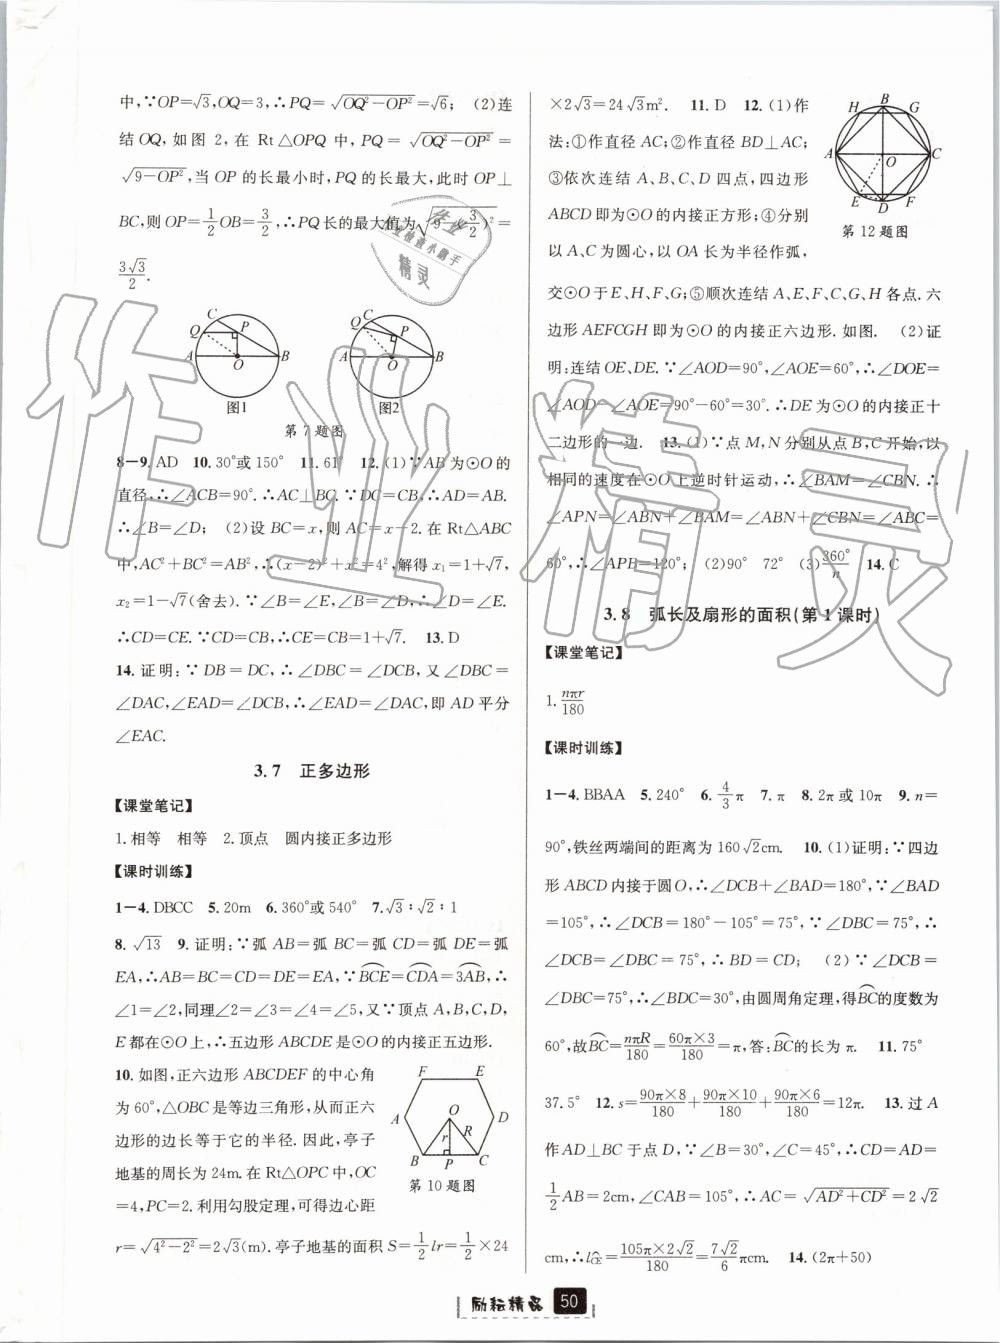 中,∵OP=√3,OQ=3,∴PQ=√(OQ²-OP²)=√6; (2)连
结OQ,如图 2,在 Rt△OPQ 中,PQ=√(OQ²-OP²)=
√(9-OP²),当 OP 的长最小时,PQ的长最大,此时OP⊥
BC,则OP=1/2OB=3/2,∴PQ长的最大值为√(9-(3/2)²)=
3√3/2.
C Q P A O B
图1
C Q P A O B
图2
第 7 题图
8—9. AD 10. 30°或 150° 11. 61° 12. (1)∵AB为⊙O的
直径,∴∠ACB=90°.∴AC⊥BC.∵DC=CB,∴AD=AB.
∴∠B=∠D; (2)设 BC=x,则 AC=x-2.在 Rt△ABC
中,AC²+BC²=AB²,∴(x-2)²+x²=4²,解得x₁=1+√7,
x₂=1-√7(舍去).∵∠B=∠E,∠B=∠D,∴∠D=∠E.
∴CD=CE.∵CD=CB,∴CE=CB=1+√7. 13. D
14. 证明:∵DB=DC,∴∠DBC=∠DCB,又∠DBC=
∠DAC,∠EAD=∠DCB,∴∠EAD=∠DAC,即 AD 平分
∠EAC.
3.7 正多边形
【课堂笔记】
1.相等 相等 2.顶点 圆内接正多边形
【课时训练】
1—4. DBCC 5. 20m 6. 360°或 540° 7. √3∶√2∶1
8. √13 9. 证明:∵弧 AB=弧 BC=弧 CD=弧 DE=弧
EA,∴AB=BC=CD=DE=EA,∵BCE=CDA=3AB,∴
∠1=∠2,同理∠2=∠3=∠4=∠5,又∵顶点 A,B,C,D,
E都在⊙O上,∴五边形 ABCDE是⊙O的内接正五边形.
10. 如图,正六边形 ABCDEF 的中心角
为 60°,△OBC是等边三角形,从而正六
边形的边长等于它的半径. 因此,亭子
地基的周长为 24m. 在 Rt△OPC中,OC
=4,PC=2. 利用勾股定理,可得边心距
F E A O D r R B P C
第 10 题图
r=√(4²-2²)=2√3(m).亭子地基的面积 S=1/2lr=1/2×24
×2√3=24√3m². 11. D 12. (1)作
法:①作直径 AC;②作直径 BD⊥AC;
③依次连结 A、B、C、D 四点,四边形
ABCD即为⊙O的内接正方形;④分别
以 A、C 为圆心,以 OA 长为半径作弧,
B H G A O C E D F
第 12 题图
交⊙O于 E、H、F、G;⑤顺次连结 A、E、F、C、G、H 各点. 六
边形 AEFCGH 即为⊙O的内接正六边形. 如图. (2)证
明:连结OE、DE.∵∠AOD=90°,∠AOE=60°,∴∠DOE=
∠AOD-∠AOE=90°-60°=30°.∴DE为⊙O的内接正十
二边形的一边. 13. (1)∵点 M,N 分别从点 B,C开始,以
相同的速度在⊙O上逆时针运动,∴∠BAM=∠CBN.∴
∠APN=∠ABN+∠BAM=∠ABN+∠CBN=∠ABC=
60°,∴∠APB=120°; (2)90° 72° (3)360°/n 14. C
3.8 弧长及扇形的面积(第 1 课时)
【课堂笔记】
1. nπr/180
【课时训练】
1—4. BBAA 5. 240° 6. 4/3π 7. π 8. 2π或 10π 9. n=
90°,铁丝两端间的距离为 160√2cm. 10. (1)证明:∵四边
形 ABCD 内接于圆O,∴∠DCB+∠BAD=180°,∵∠BAD
=105°,∴∠DCB=180°-105°=75°,∵∠DBC=75°,∴
∠DCB=∠DBC=75°,∴BD=CD; (2)∵∠DCB=
∠DBC=75°,∴∠BDC=30°,由圆周角定理,得BC的度数为
60°,故BC=nπR/180=60π×3/180=π,答:BC的长为 π. 11. 75°
37.5° 12. s=90π×8/180+90π×10/180+90π×6/180=12π. 13. 过 A
作AD⊥BC于点D,∵∠B=30°,∠C=45°,∴CD=AD=
1/2AB=2cm,∠CAB=105°,∴AC=√(AD²+CD²)=2√2
cm,∴l CE=105π×2√2/180=7√2/6πcm. 14. (2π+50)
励耘精品 50
作业精灵